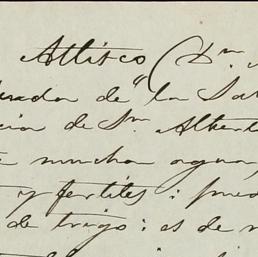 Atlixco (Dn
"la Sa
cia de Sn Albert
mucha agua,
y fertiles; pued
de trigo; es de m